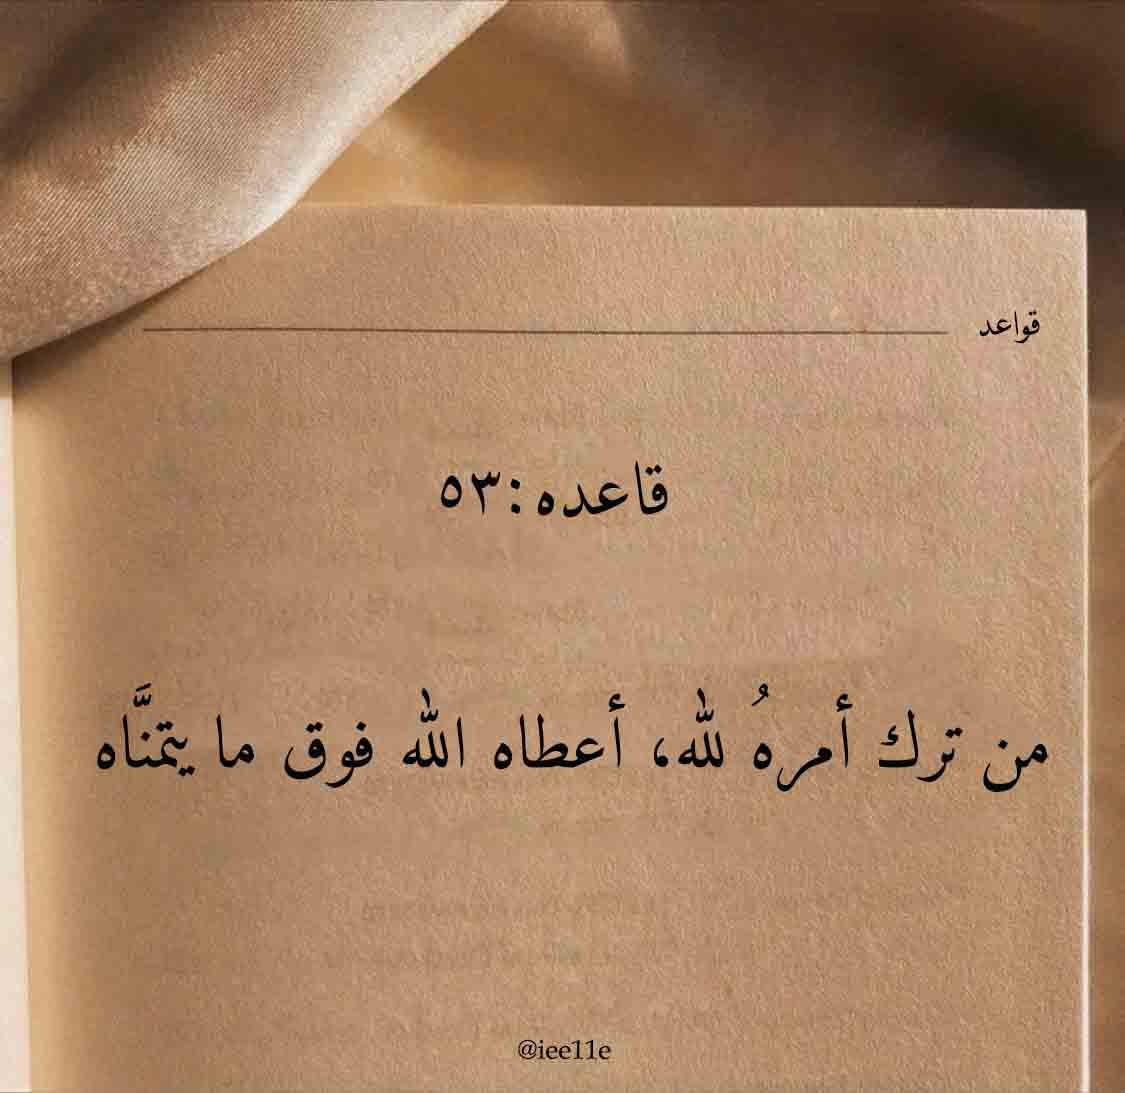 قواعد
قاعده:٥٣
من ترك أمرهُ لله، أعطاه الله فوق ما يتمنَّاه
@iee11e